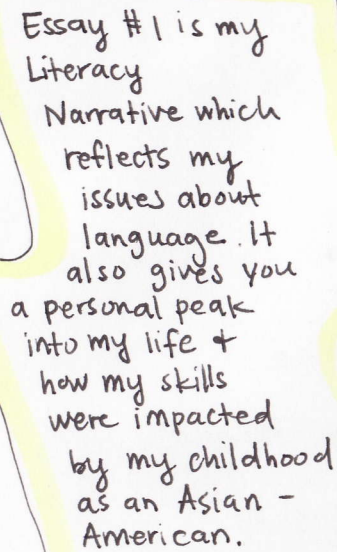 Essay #1 is my
Literacy
Narrative which
reflects my
issues about
language. It
also gives you
a personal peak
into my life +
how my skills
were impacted
by my childhood
as an Asian -
American.